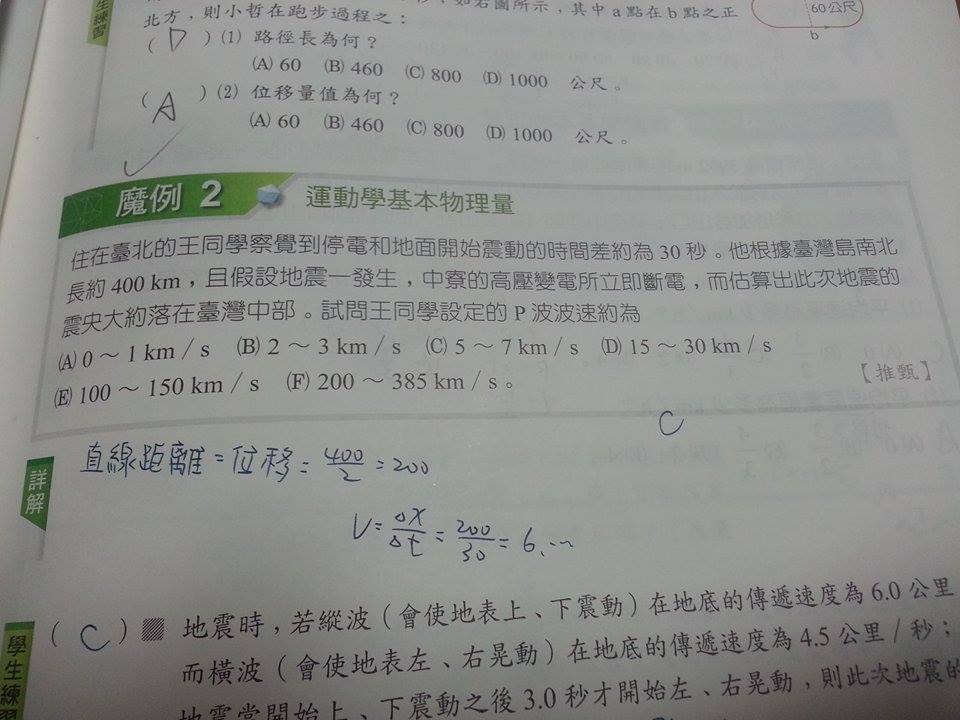 如右圖所示，其中a點在b點之正
60公尺
b
北方，則小哲在跑步過程之：
( D ) (1) 路徑長為何？
(A) 60 (B) 460 (C) 800 (D) 1000 公尺。
( A ) (2) 位移量值為何？
(A) 60 (B) 460 (C) 800 (D) 1000 公尺。
魔例 2 運動學基本物理量
住在臺北的王同學察覺到停電和地面開始震動的時間差約為 30 秒。他根據臺灣島南北
長約 400 km，且假設地震一發生，中寮的高壓變電所立即斷電，而估算出此次地震的
震央大約落在臺灣中部。試問王同學設定的 P 波波速約為
(A) 0 ~ 1 km / s (B) 2 ~ 3 km / s (C) 5 ~ 7 km / s (D) 15 ~ 30 km / s
(E) 100 ~ 150 km / s (F) 200 ~ 385 km / s。
【推甄】
C
詳解
直線距離=位移= 400/2 =200
V= ΔX/Δt = 200/30 = 6.…
學生練習
( C ) 地震時，若縱波（會使地表上、下震動）在地底的傳遞速度為 6.0 公里
而橫波（會使地表左、右晃動）在地底的傳遞速度為 4.5 公里／秒；
地震當開始上、下震動之後 3.0 秒才開始左、右晃動，則此次地震的